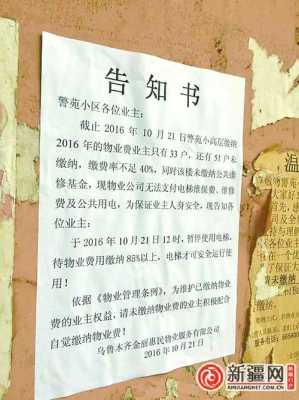 告知书
警苑小区各位业主:
截止2016年10月21日警苑小高层缴纳
2016年的物业费业主只有33户,还有51户未
缴纳,缴费率不足40%,同时该楼未缴纳公共维
修基金,现物业公司无法支付电梯维保费、维修
费及公共用电,为保证业主人身安全,现告知各
位业主:
于2016年10月21日12时,暂停使用电梯,
待物业费用缴纳85%以上,电梯才可安全运行使
用!
依据《物业管理条例》,为维护已缴纳物业
费的业主权益,请未缴纳物业费的业主积极配合
自觉缴纳物业费!
乌鲁木齐金丽惠民物业服务有限公司
2016年10月21日
温
新疆网